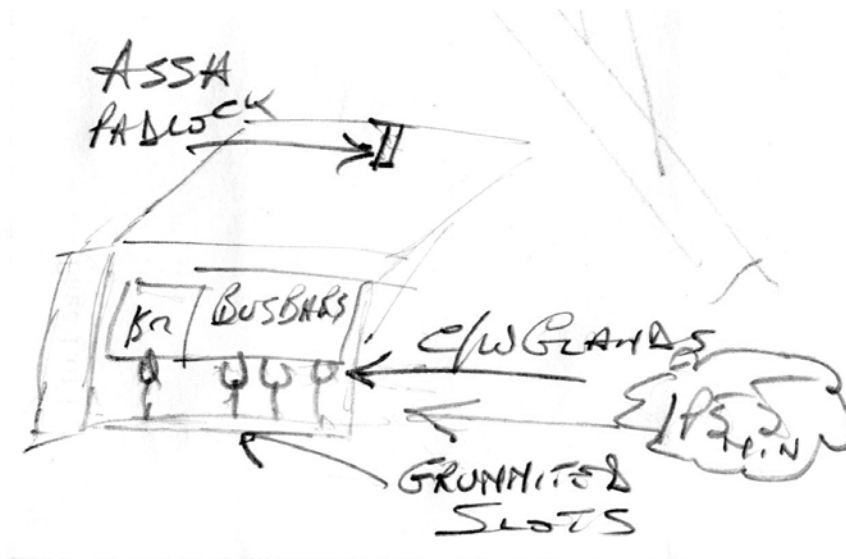 ASSA
PADLOCK
BUSBARS
C/W GLANDS
IP55
MIN
GRUMMITED
SLOTS